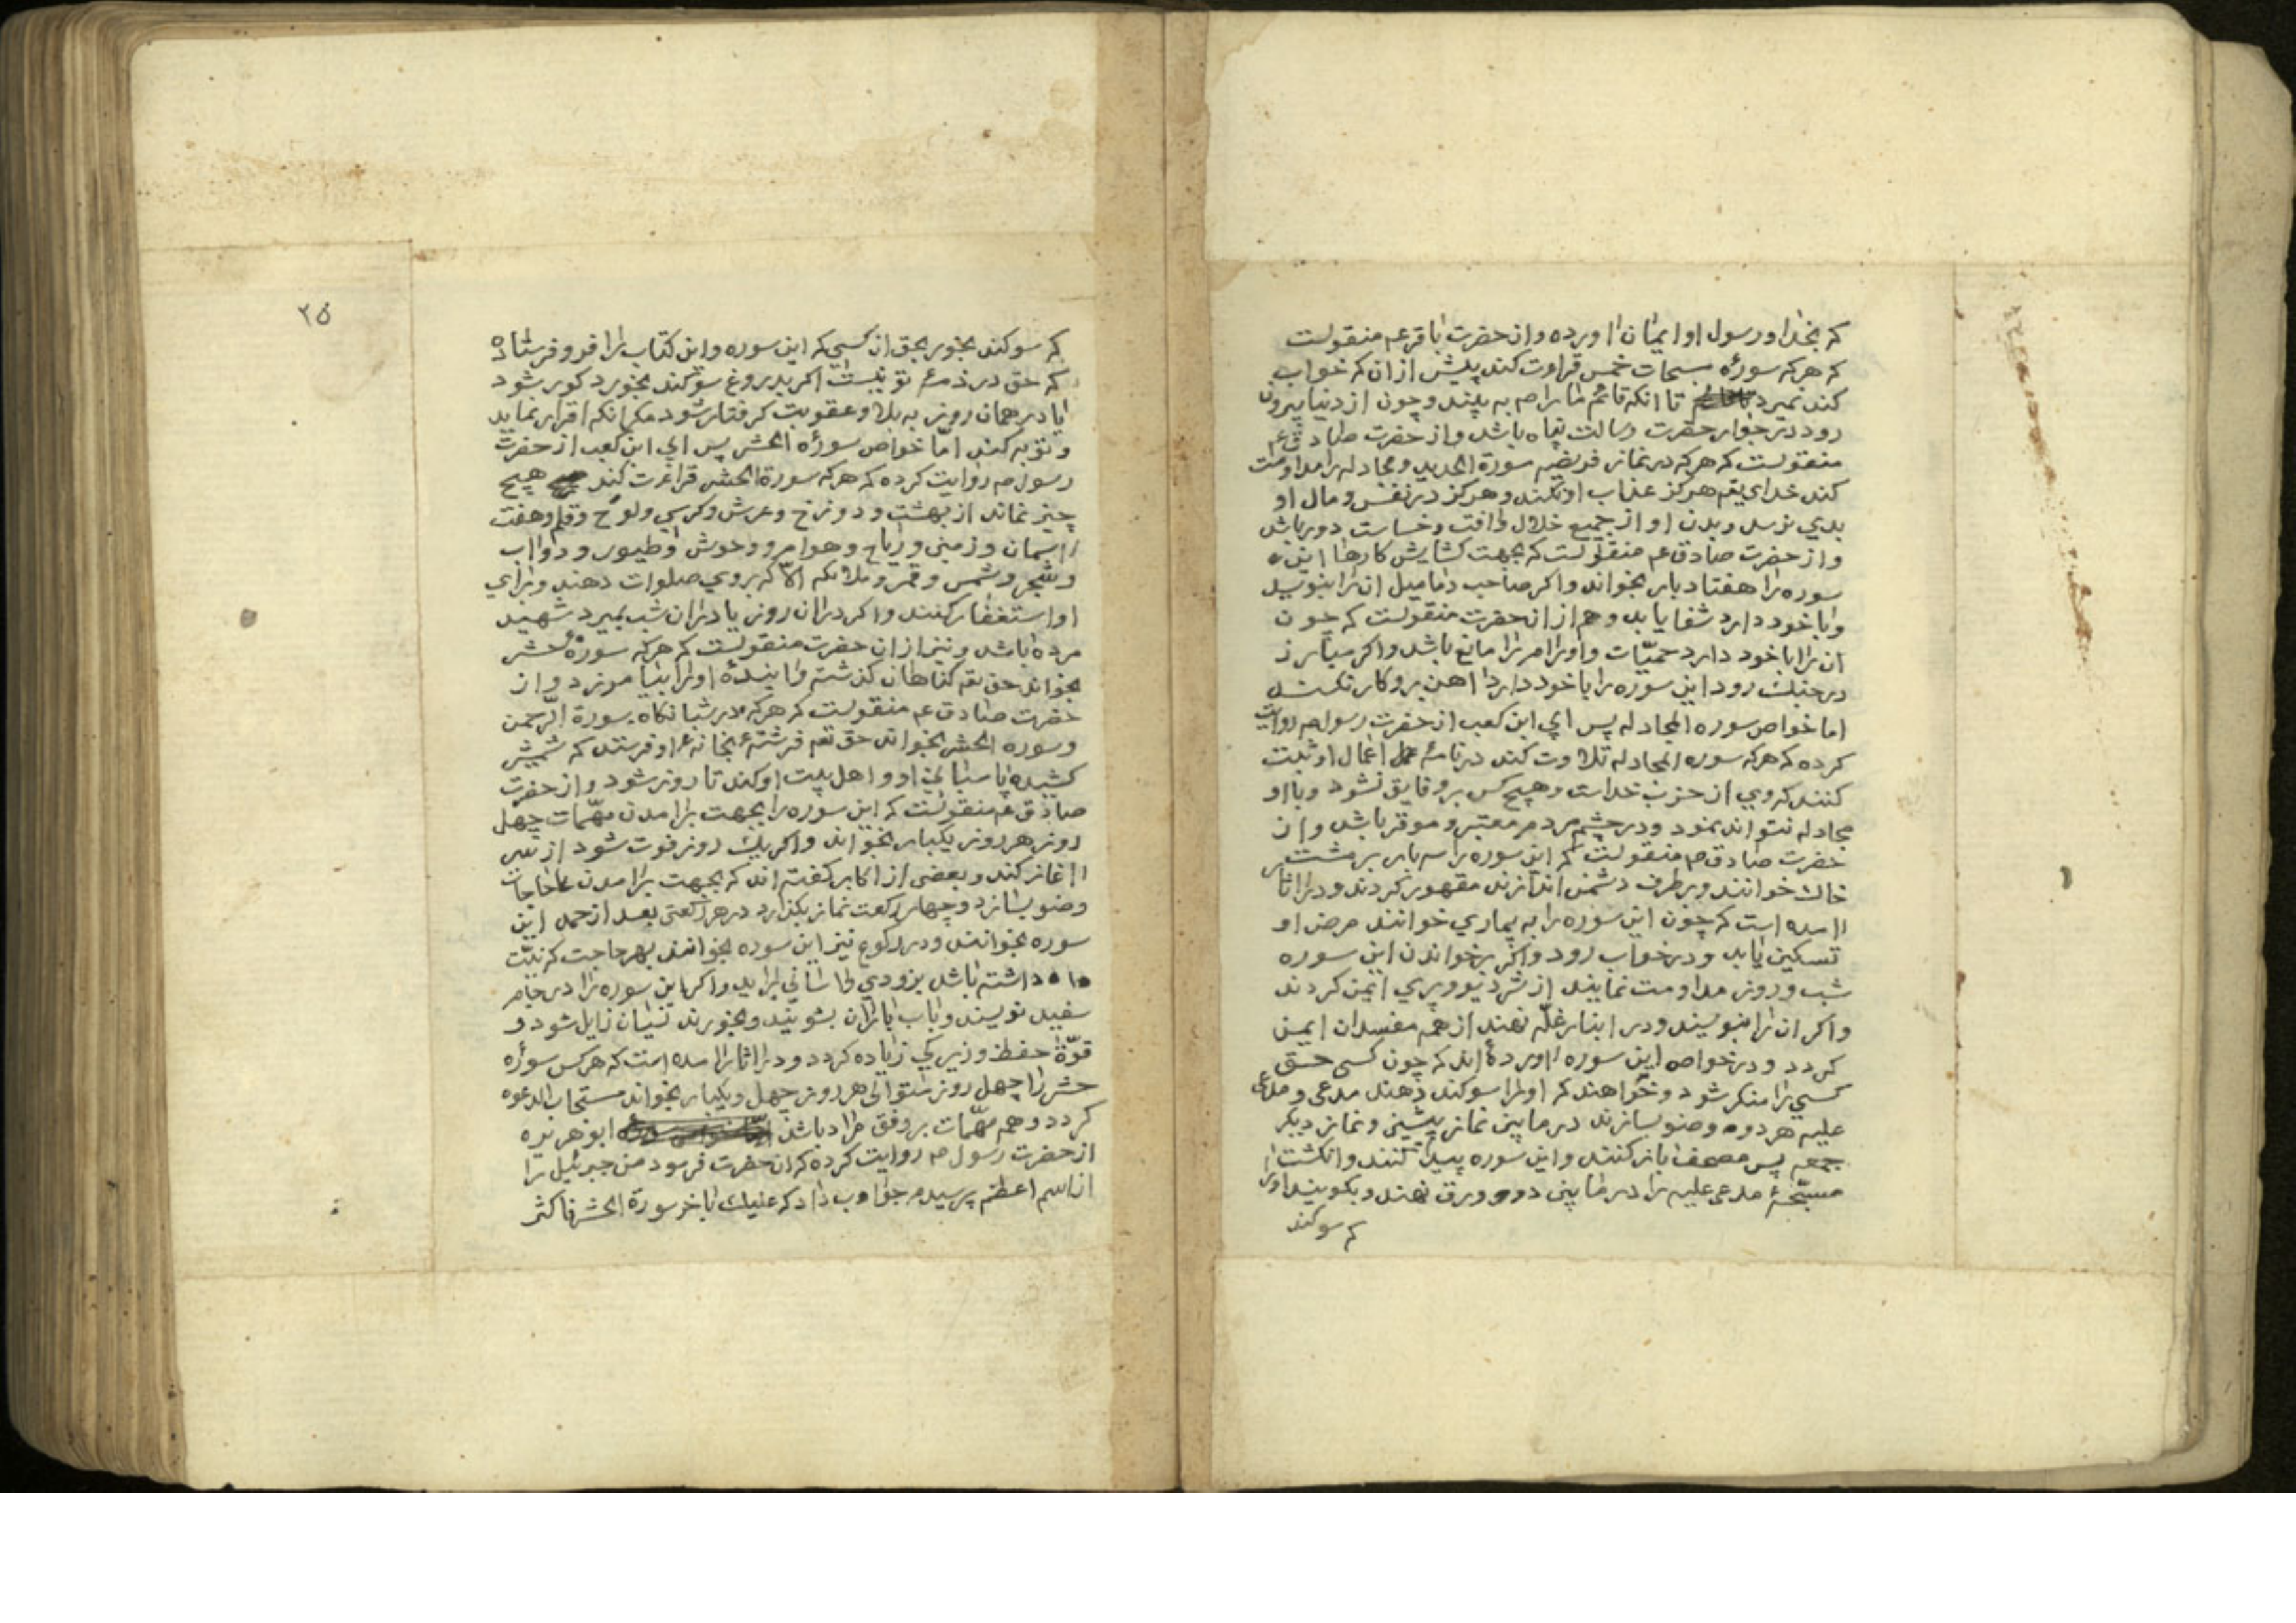 که بخدا و رسول او ایمان اورده و از حضرت باقر عم منقولست
که هر که سورهٔ مسبحات خمس قراءت کند پیش از ان که خواب
کند نمیرد تا انکه قائم ما را صم به بیند و چون از دنیا بیرون
رود در جوار حضرت رسالت پناه باشد و از حضرت صادق عم
منقولست که هر که در نماز فریضه سورة الحدید و مجادله را مداومت
کند خدای تعم هرکز عذاب او نکند و هرکز در نفس و مال او
بدی نرسد و بدن او از جمیع خلال و افت و خساست دور باشد
و از حضرت صادق عم منقولست که بجهت کشایش کارها این
سوره را هفتاد بار بخواند و اکر صاحب دمامیل ان را بنویسد
و با خود دارد شفا یابد و هم از ان حضرت منقولست که چون
ان را با خود دارد حمیّات و اورام را مانع باشد و اکر مبارز
در جنك رود این سوره را با خود دارد اهن برو کار نکند
اما خواص سوره المجادله پس ابی ابن کعب از حضرت رسول صم روایت
کرده که هر که سوره المجادله تلاوت کند در نامهٔ اعمال او ثبت
کنند که وی از حزب خداست و هیچ کس برو فایق نشود و با او
مجادله نتواند نمود و در چشم مردم معتبر و موقر باشد و از
حضرت صادق صم منقولست که این سوره را سه بار بر مشت
خاك خوانند و بر طرف دشمن اندازند مقهور کردند و در اثار
امده است که چون این سوره را به بیماری خوانند مرض او
تسکین یابد و در خواب رود و اکر بر خواندن این سوره
شب و روز مداومت نمایند از شر دیو و پری ایمن کردند
و اکر ان را بنویسند و در انبار غلّه نهند از همه مفسدان ایمن
کردد و در خواص این سوره اورده اند که چون کسی حق
کسی را منکر شود و خواهند که او را سوکند دهند مدعی و مدعی
علیه هر دو وضو بسازند در مابین نماز پیشین و نماز دیکر
جمعه پس مصحف باز کنند و این سوره پیدا کنند و انکشت
مسبّحهٔ مدعی علیه را در مابین دو ورق نهند و بکویند او را
که سوکند
۲۵
که سوکند بخور بحق ان کسی که این سوره و این کتاب را فرو فرستاده
که حق در ذمهٔ تو نیست اکر بدروغ سوکند بخورد کور شود
یا در همان روز به بلا و عقوبت کرفتار شود مکر انکه اقرار نماید
و توبه کند امّا خواص سورهٔ الحشر پس ابی ابن کعب از حضرت
رسول صم روایت کرده که هر که سورة الحشر قراءت کند هیچ
چیز نماند از بهشت و دوزخ و عرش و کرسی و لوح و قلم و هفت
اسمان و زمین و ریاح و هوام و وحوش و طیور و دواب
و شجر و شمس و قمر و ملائکه الّا که بر وی صلوات دهند و برای
او استغفار کنند و اکر در ان روز یا در ان شب بمیرد شهید
مرده باشد و نیز از ان حضرت منقولست که هر که سورهٔ حشر
بخواند حق تعم کناهان کذشته و ایندهٔ او را بیامرزد و از
حضرت صادق عم منقولست که هر که در شبانکاه سورة الرّحمن
و سوره الحشر بخواند حق تعم فرشتهٔ بخانهٔ او فرستد که شمشیر
کشیده پاسبانی او و اهل بیت او کند تا روز شود و از حضرت
صادق عم منقولست که این سوره را بجهت برامدن مهّمات چهل
روز هر روز یکبار بخواند و اکر یك روز فوت شود از سر
اغاز کند و بعضی از اکابر کفته اند که بجهت برامدن حاجات
وضو بسازد و چهار رکعت نماز بکذارد در هر رکعتی بعد از حمد این
سوره بخوانند و در رکوع نیز این سوره بخوانند بهر حاجت که نیّت
داشته باشد بزودی و اسانی براید و اکر این سوره را در جام
سفید نویسند و باب باران بشویند و بخورند نسیان زایل شود و
قوّة حفظ و زیرکی زیاده کردد و در اثار امده است که هر کس سورهٔ
حشر را چهل روز متوالی هر روز چهل و یکبار بخواند مستجاب الدعوه
کردد و هم مهّمات بر وفق مراد باشد ابو هریره
از حضرت رسول صم روایت کرده که ان حضرت فرمود من جبرئیل را
از اسم اعظم پرسیدم جواب داد که علیك باخر سورة الحشر فاکثر